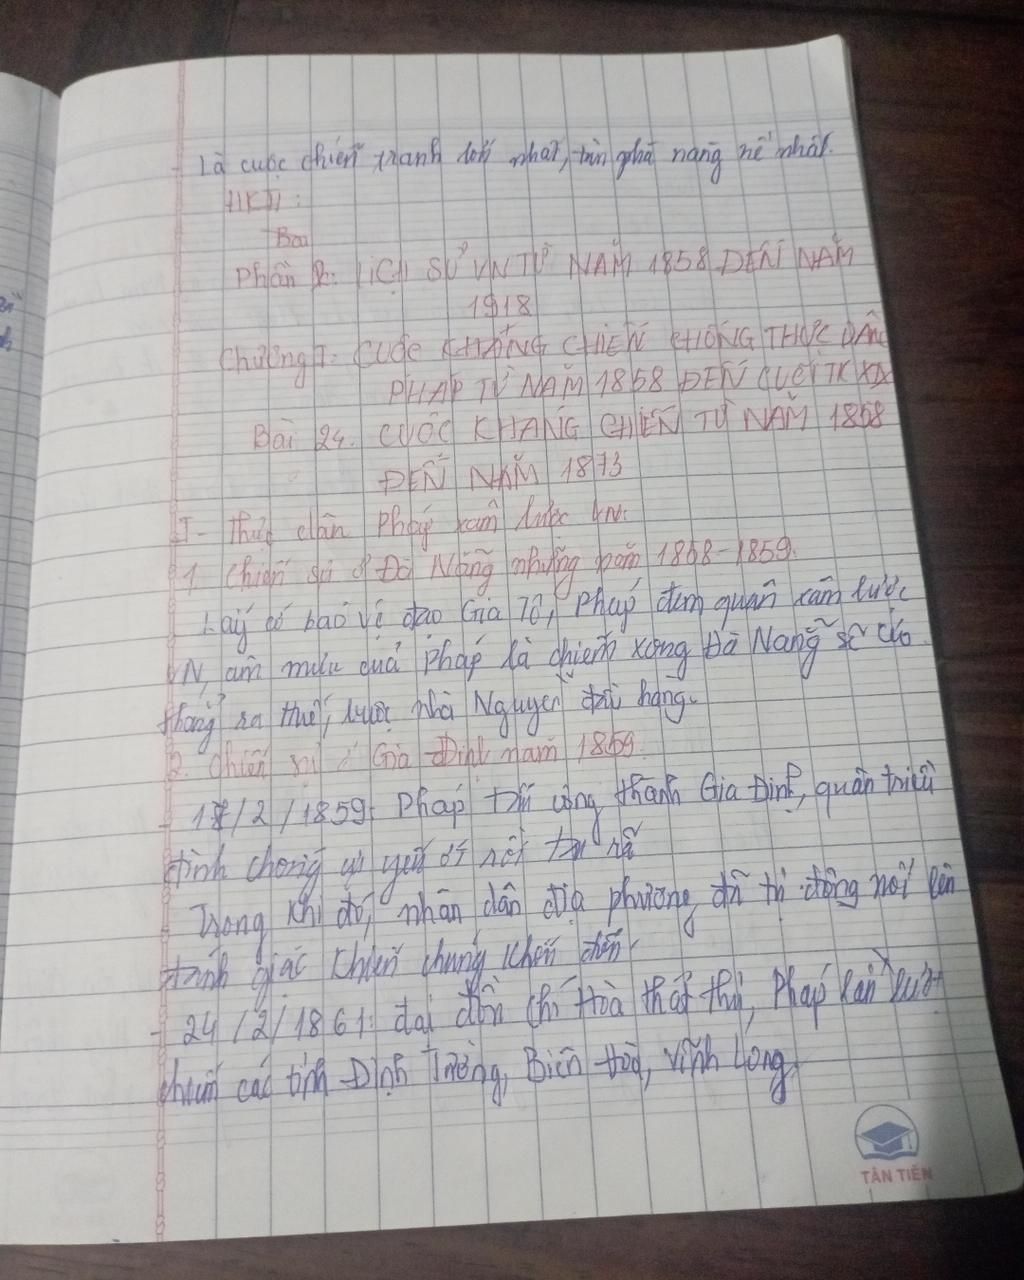 - Là cuộc chiến tranh lớn nhất, tàn phá nặng nề nhất.
HKII:
Bài
Phần 2: LỊCH SỬ VN TỪ NĂM 1858 ĐẾN NĂM
1918
Chương I: CUỘC KHÁNG CHIẾN CHỐNG THỰC DÂN
PHÁP TỪ NĂM 1858 ĐẾN CUỐI TK XIX
Bài 24. CUỘC KHÁNG CHIẾN TỪ NĂM 1858
ĐẾN NĂM 1873
I- Thực dân Pháp xâm lược VN.
1. Chiến sự ở Đà Nẵng những năm 1858-1859.
Lấy cớ bảo vệ đạo Gia Tô, Pháp đem quân xâm lược
VN, âm mưu của Pháp là chiếm xong Đà Nẵng sẽ kéo
thẳng ra Huế, buộc nhà Nguyễn đầu hàng.
2. Chiến sự ở Gia Định năm 1859.
- 17/2/1859: Pháp tấn công thành Gia Định, quân triều
đình chống cự yếu ớt rồi tan rã
Trong khi đó, nhân dân địa phương đã tự động nổi lên
đánh giặc khiến chúng khốn đốn.
- 24/2/1861: đại đồn Chí Hoà thất thủ, Pháp lần lượt
chiếm các tỉnh Định Tường, Biên Hoà, Vĩnh Long.
TÂN TIẾN